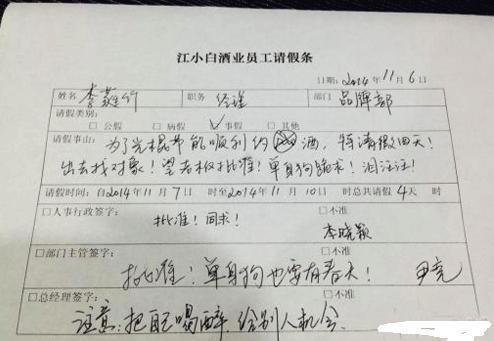 江小白酒业员工请假条
日期:2014年11月6日
姓名 李 竹 职务 经理 部门 品牌部
请假类别:
□公假 □病假 ☑事假 □其他
请假事由: 为了光棍节能顺利约 酒,特请假四天!
出去找对象!望老板批准!单身狗跪求!泪汪汪!
请假时间:自2014年11月7日 时至2014年11月10日 时总共请假4天 时
□人事行政签字: □不准
批准!同求! 李晓颖
□部门主管签字: □不准
批准!单身狗也要有春天! 尹亮
□总经理签字: □不准
注意:把自己喝醉,给别人机会.